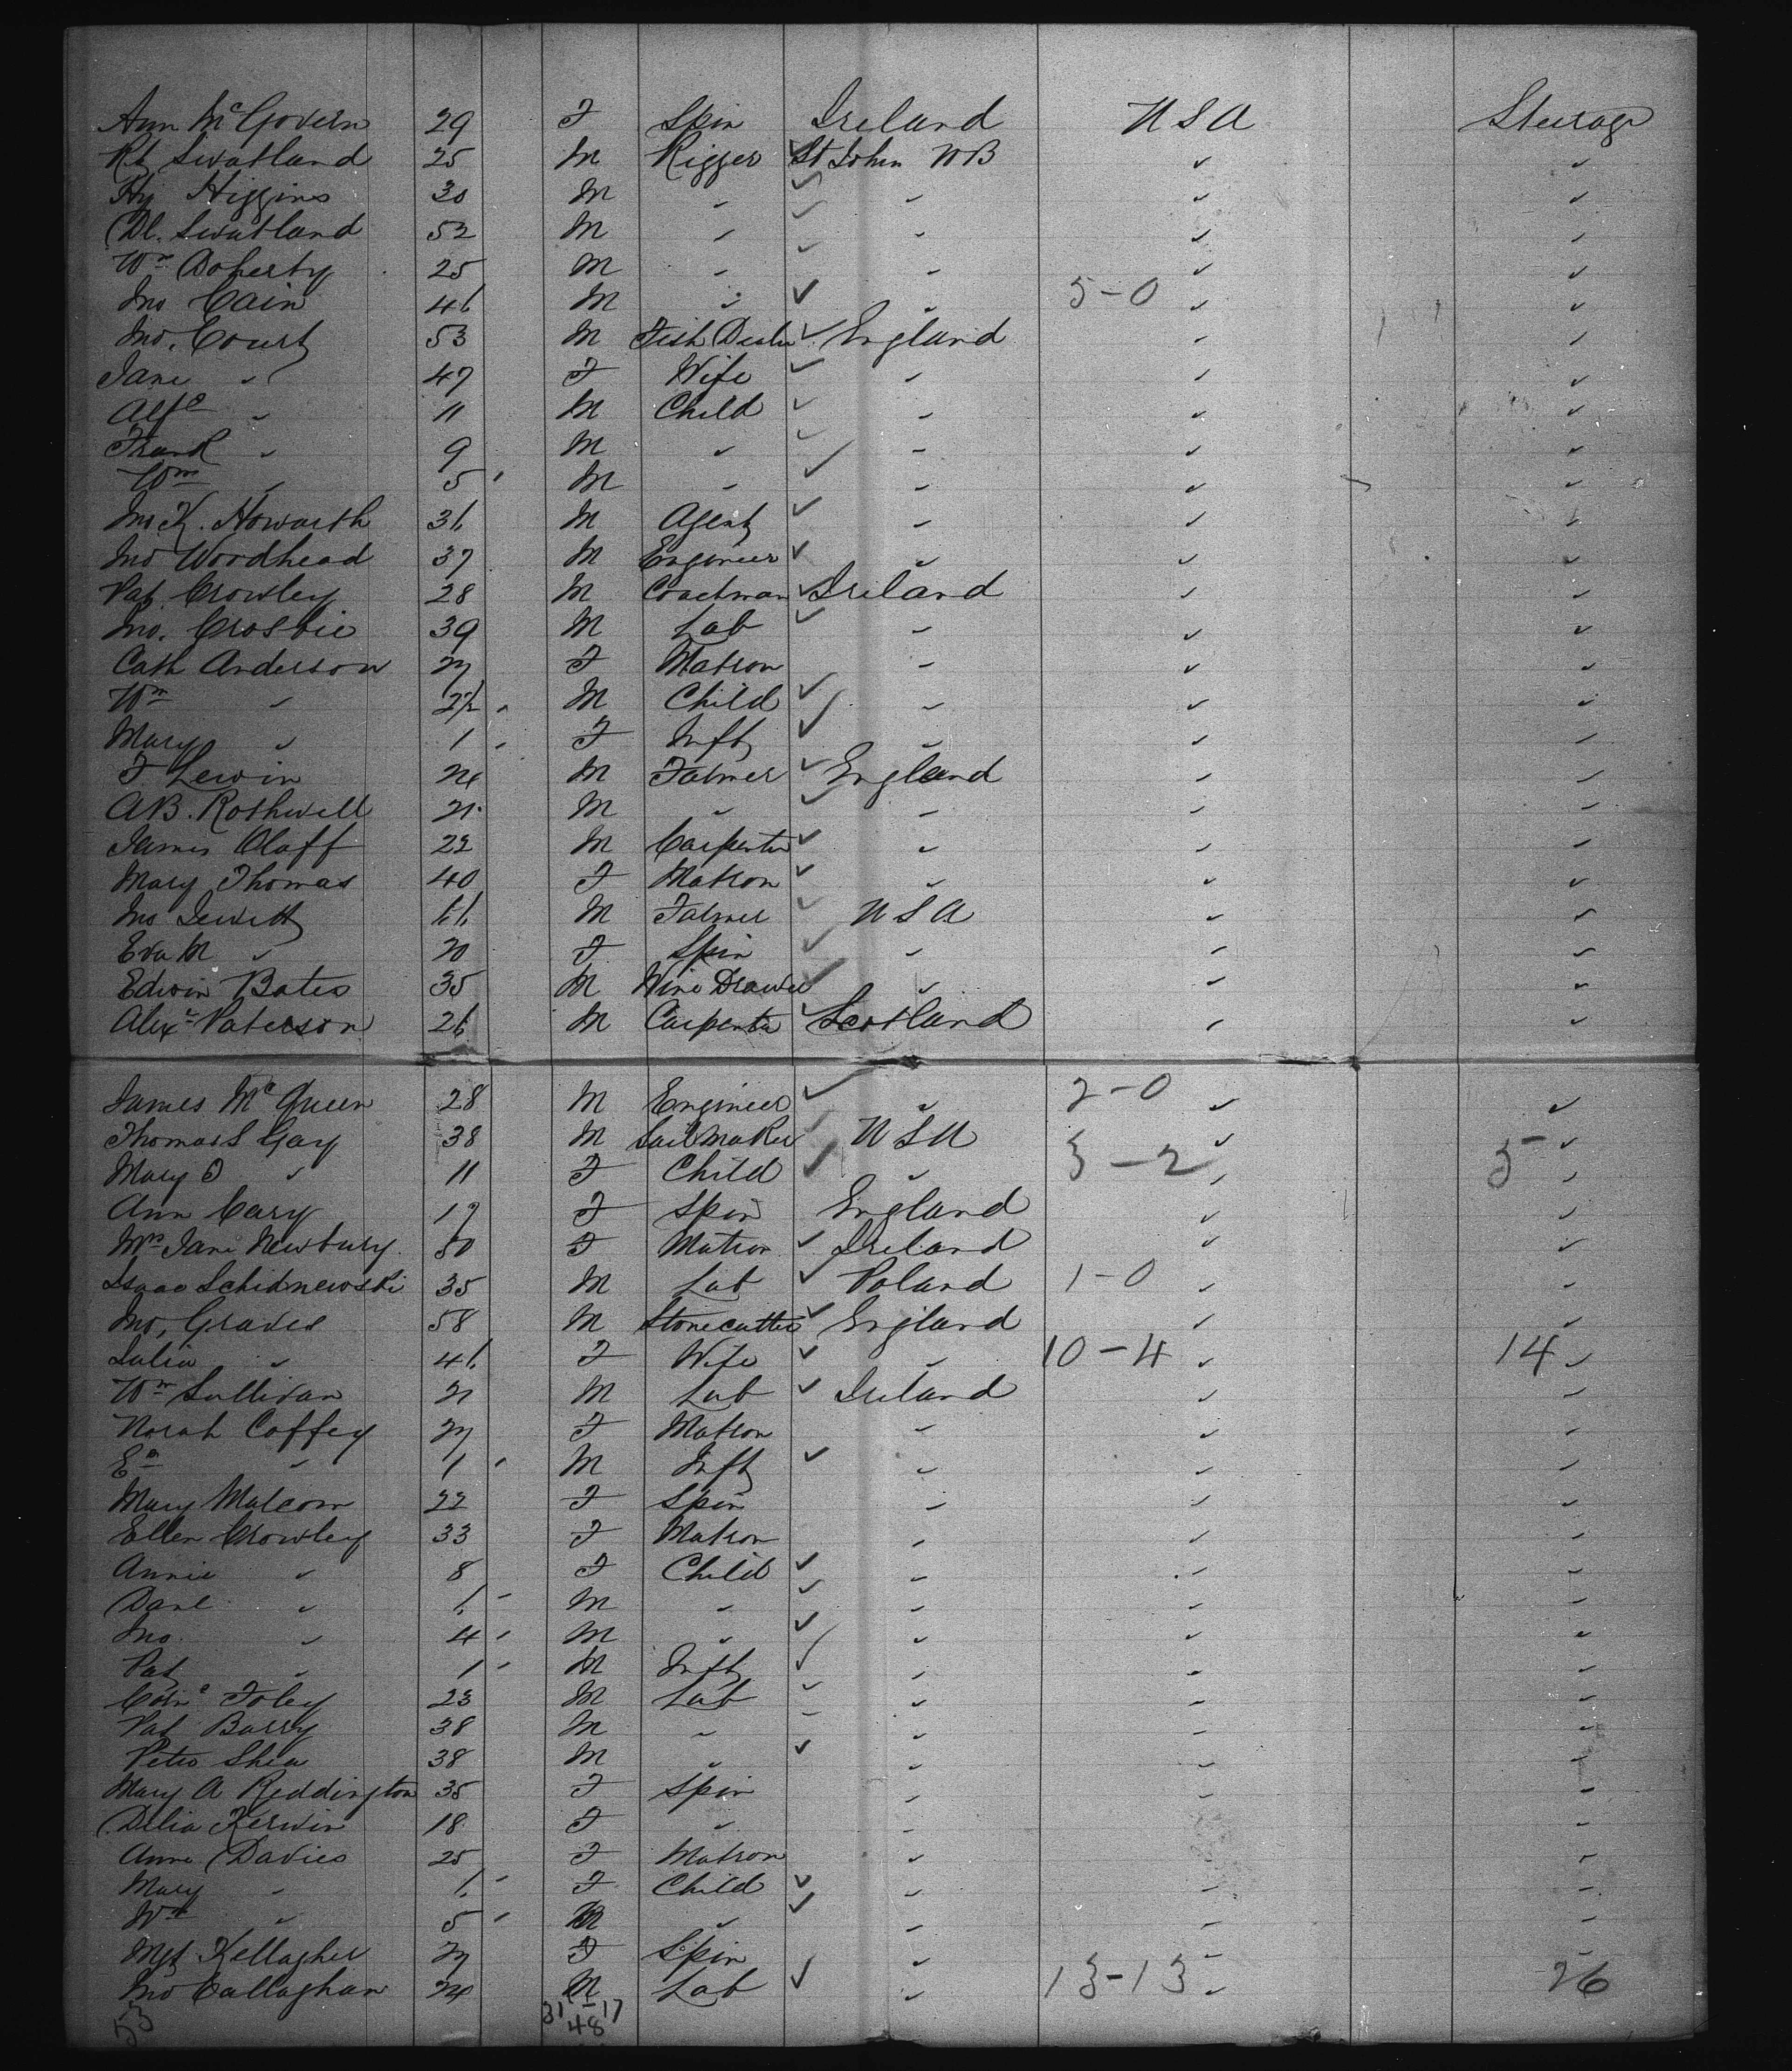 Ann McGovern 29 F Spin Ireland USA Steerage
Rt Swatland 25 M Rigger St John NB " "
Hy Higgins 30 M " " " "
Dl. Swatland 52 M " " " "
Wm Doherty 25 M " " " "
Jno Cain 46 M " " 5-0 " "
Jno. Court 53 M Fish Dealer England " "
Jane " 47 F Wife " " "
Alfd " 11 M Child " " "
Frank " 9 M " " " "
Wm " 5 M " " " "
Jno K. Howarth 36 M Agent " " "
Jno Woodhead 37 M Engineer " " "
Pat Crowley 28 M Coachman Ireland " "
Jno. Crosbie 39 M Lab " " "
Cath Anderson 27 F Matron " " "
Wm " 2½ M Child " " "
Mary " 1 F Inft " " "
F Lewin 24 M Farmer England " "
AB. Rothwell 21 M " " " "
James Olaff 22 M Carpenter " " "
Mary Thomas 40 F Matron " " "
Jno Jewitt 66 M Farmer USA " "
Eva M " 20 F Spin " " "
Edwin Bates 35 M Wire Drawer " " "
Alexr Paterson 26 M Carpenter Scotland " "
James McQueen 28 M Engineer " 2-0 " "
Thomas S Gay 38 M Sailmaker USA " "
Mary O " 11 F Child " 3-2 " 5 "
Ann Cary 17 F Spin England " "
Mrs Jane Newbury 50 F Matron Ireland " "
Isaac Schidnewski 35 M Lab Poland 1-0 " "
Jno, Graves 58 M Stonecutter England " "
Julia " 46 F Wife " 10-4 " 14 "
Wm Sullivan 21 M Lab Ireland " "
Norah Coffey 27 F Matron " " "
Ed " 1 M Inft " " "
Mary Malcom 22 F Spin " " "
Ellen Crowley 33 F Matron " " "
Annie " 8 F Child " " "
Danl " 6 M " " " "
Jno. " 4 M " " " "
Pat " 1 M Inft " " "
Corns Foley 23 M Lab " " "
Pat Barry 38 M " " " "
Peter Shea 38 M " " " "
Mary A Reddington 35 F Spin " " "
Delia Kerwin 18 F " " " "
Anne Davies 25 F Matron " " "
Mary " 6 F Child " " "
Wm " 5 M " " " "
Mgt Kellagher 27 F Spin " " "
Jno Callaghan 24 M Lab " 13-13 " 26
53 31-17
48